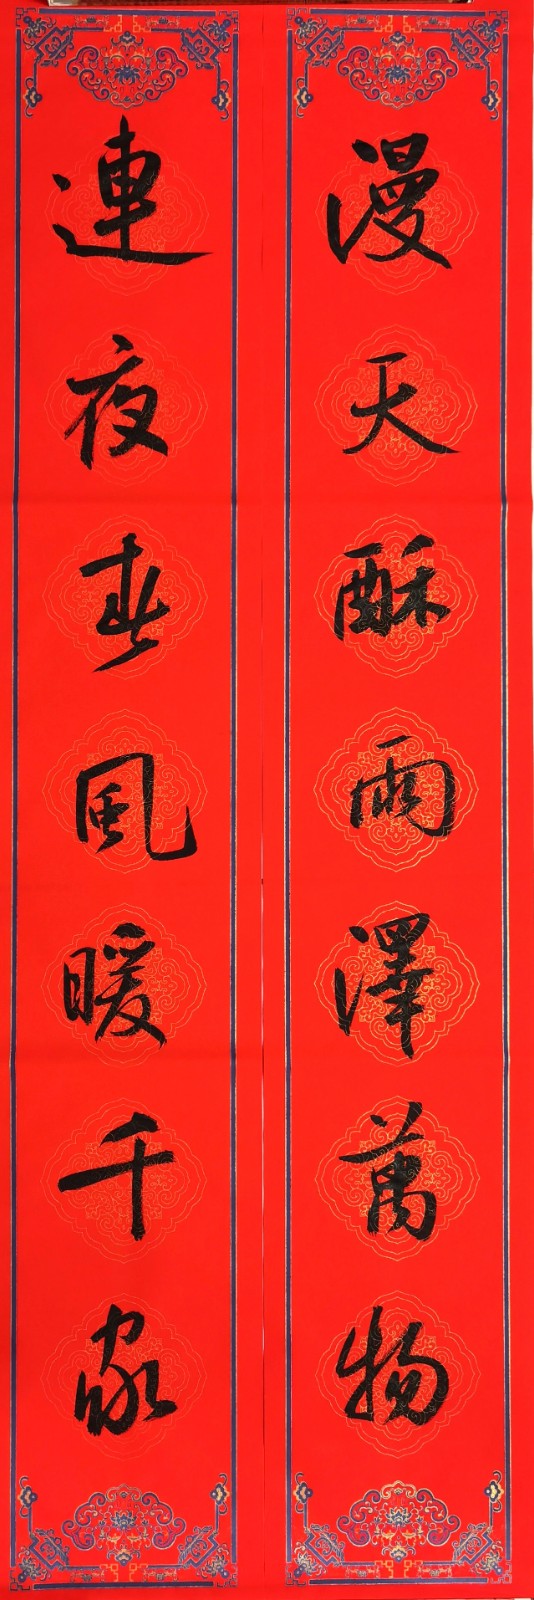 漫天酥雨澤萬物
連夜春風暖千家